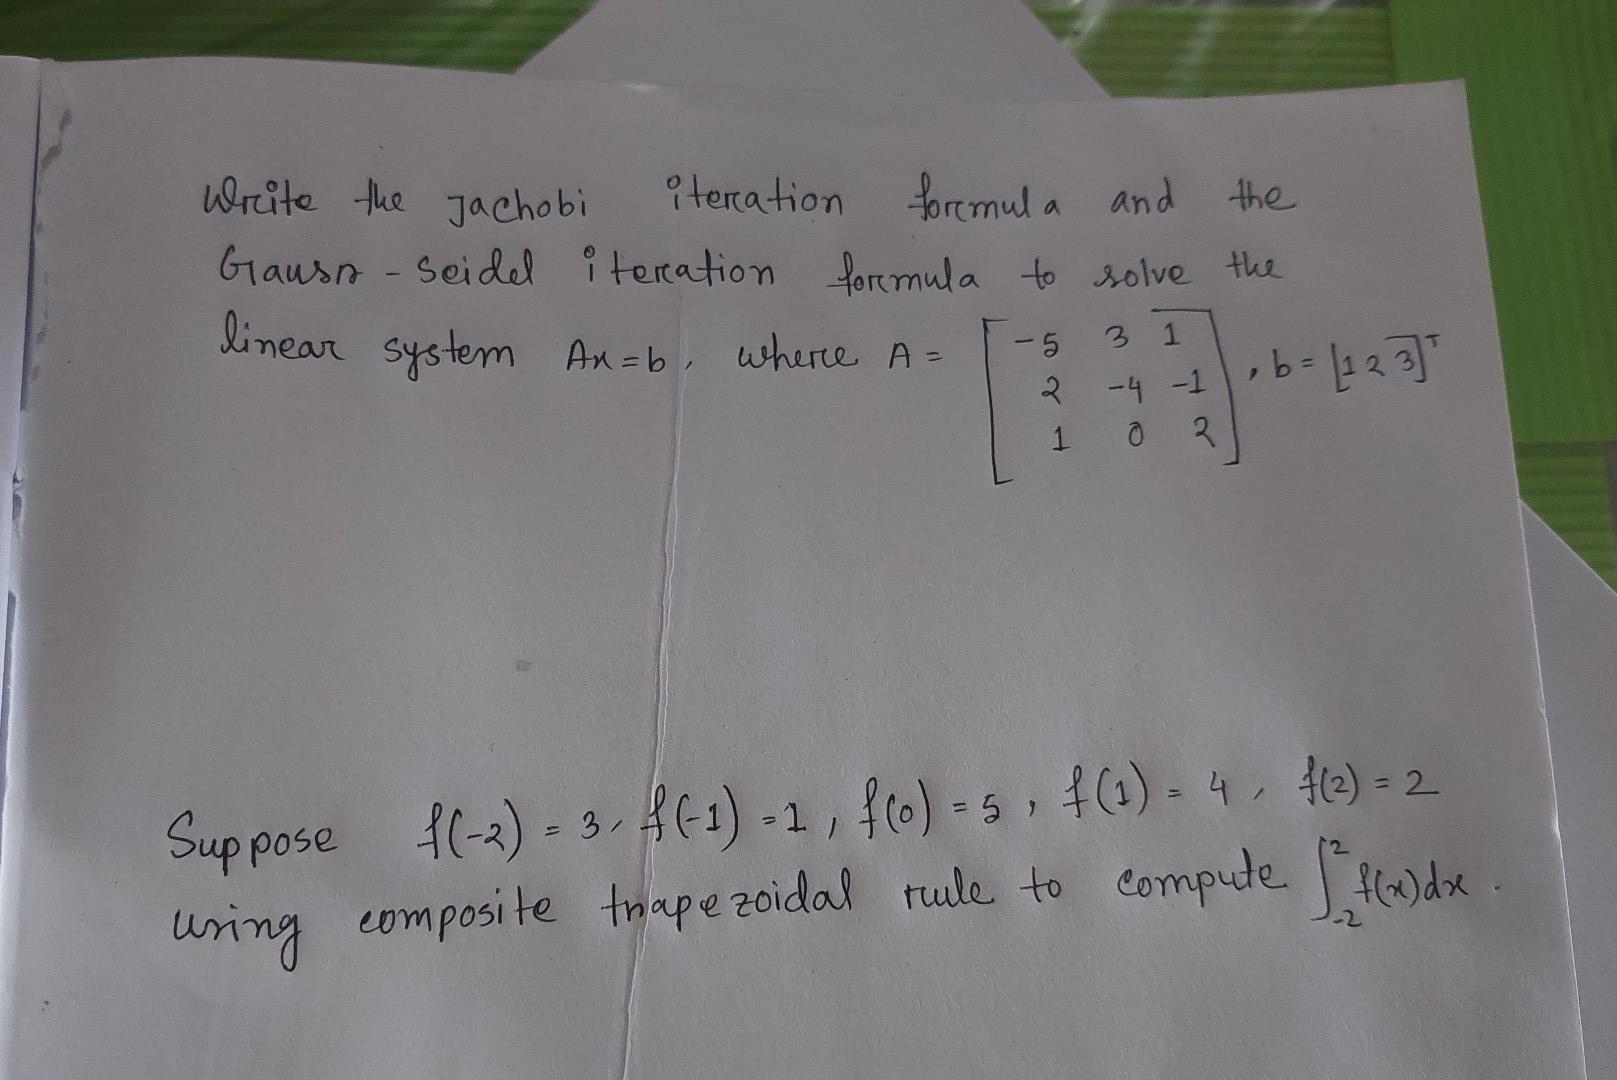 Write the Jachobi iteration formula and the
Gauss-Seidel iteration formula to solve the
linear system Ax=b, where A = [-5 3 1
2 -4 -1
1 0 2], b = [1 2 3]ᵀ
Suppose f(-2) = 3, f(-1) = 1, f(0) = 5, f(1) = 4, f(2) = 2
using composite trapezoidal rule to compute ∫₋₂² f(x)dx.